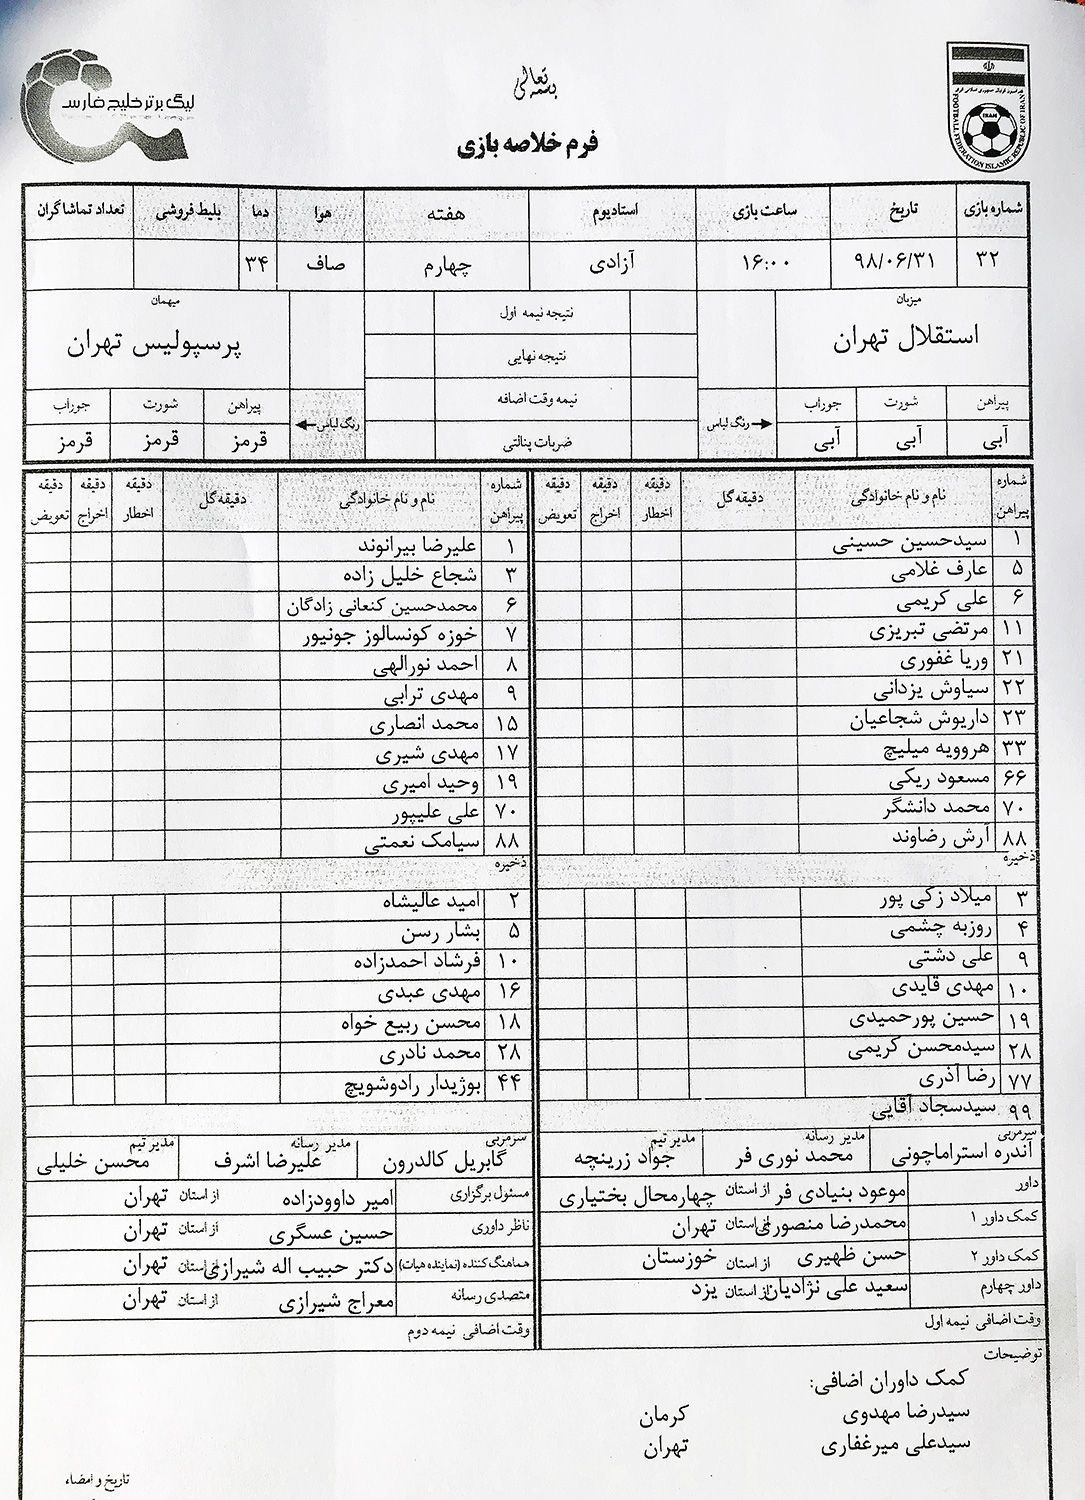 بسمه تعالی
لیگ برتر خلیج فارس
FOOTBALL FEDERATION ISLAMIC REPUBLIC OF IRAN
IRAN
فرم خلاصه بازی
شماره بازی تاریخ ساعت بازی استادیوم هفته هوا دما بلیط فروشی تعداد تماشاگران
۳۲ ۹۸/۰۶/۳۱ ۱۶:۰۰ آزادی چهارم صاف ۳۴
میزبان نتیجه نیمه اول میهمان
استقلال تهران نتیجه نهایی پرسپولیس تهران
پیراهن شورت جوراب رنگ لباس نیمه وقت اضافه رنگ لباس پیراهن شورت جوراب
آبی آبی آبی ضربات پنالتی قرمز قرمز قرمز
شماره پیراهن نام و نام خانوادگی دقیقه گل دقیقه اخطار دقیقه اخراج دقیقه تعویض
۱ سیدحسین حسینی
۵ عارف غلامی
۶ علی کریمی
۱۱ مرتضی تبریزی
۲۱ وریا غفوری
۲۲ سیاوش یزدانی
۲۳ داریوش شجاعیان
۳۳ هروویه میلیچ
۶۶ مسعود ریکی
۷۰ محمد دانشگر
۸۸ آرش رضاوند
ذخیره
۳ میلاد زکی پور
۴ روزبه چشمی
۹ علی دشتی
۱۰ مهدی قایدی
۱۹ حسین پورحمیدی
۲۸ سیدمحسن کریمی
۷۷ رضا آذری
۹۹ سیدسجاد آقایی
سرمربی آندره استراماچونی مدیر رسانه محمد نوری فر مدیر تیم جواد زرینچه
داور موعود بنیادی فر از استان چهارمحال بختیاری
کمک داور ۱ محمدرضا منصوری از استان تهران
کمک داور ۲ حسن ظهیری از استان خوزستان
داور چهارم سعید علی نژادیان از استان یزد
وقت اضافی نیمه اول
شماره پیراهن نام و نام خانوادگی دقیقه گل دقیقه اخطار دقیقه اخراج دقیقه تعویض
۱ علیرضا بیرانوند
۳ شجاع خلیل زاده
۶ محمدحسین کنعانی زادگان
۷ خوزه کونسالوز جونیور
۸ احمد نورالهی
۹ مهدی ترابی
۱۵ محمد انصاری
۱۷ مهدی شیری
۱۹ وحید امیری
۷۰ علی علیپور
۸۸ سیامک نعمتی
ذخیره
۲ امید عالیشاه
۵ بشار رسن
۱۰ فرشاد احمدزاده
۱۶ مهدی عبدی
۱۸ محسن ربیع خواه
۲۸ محمد نادری
۴۴ بوژیدار رادوشویچ
سرمربی گابریل کالدرون مدیر رسانه علیرضا اشرف مدیر تیم محسن خلیلی
مسئول برگزاری امیر داوودزاده از استان تهران
ناظر داوری حسین عسگری از استان تهران
هماهنگ کننده (نماینده هیات) دکتر حبیب اله شیرازی از استان تهران
متصدی رسانه معراج شیرازی از استان تهران
وقت اضافی نیمه دوم
توضیحات
کمک داوران اضافی:
سیدرضا مهدوی کرمان
سیدعلی میرغفاری تهران
تاریخ و امضاء